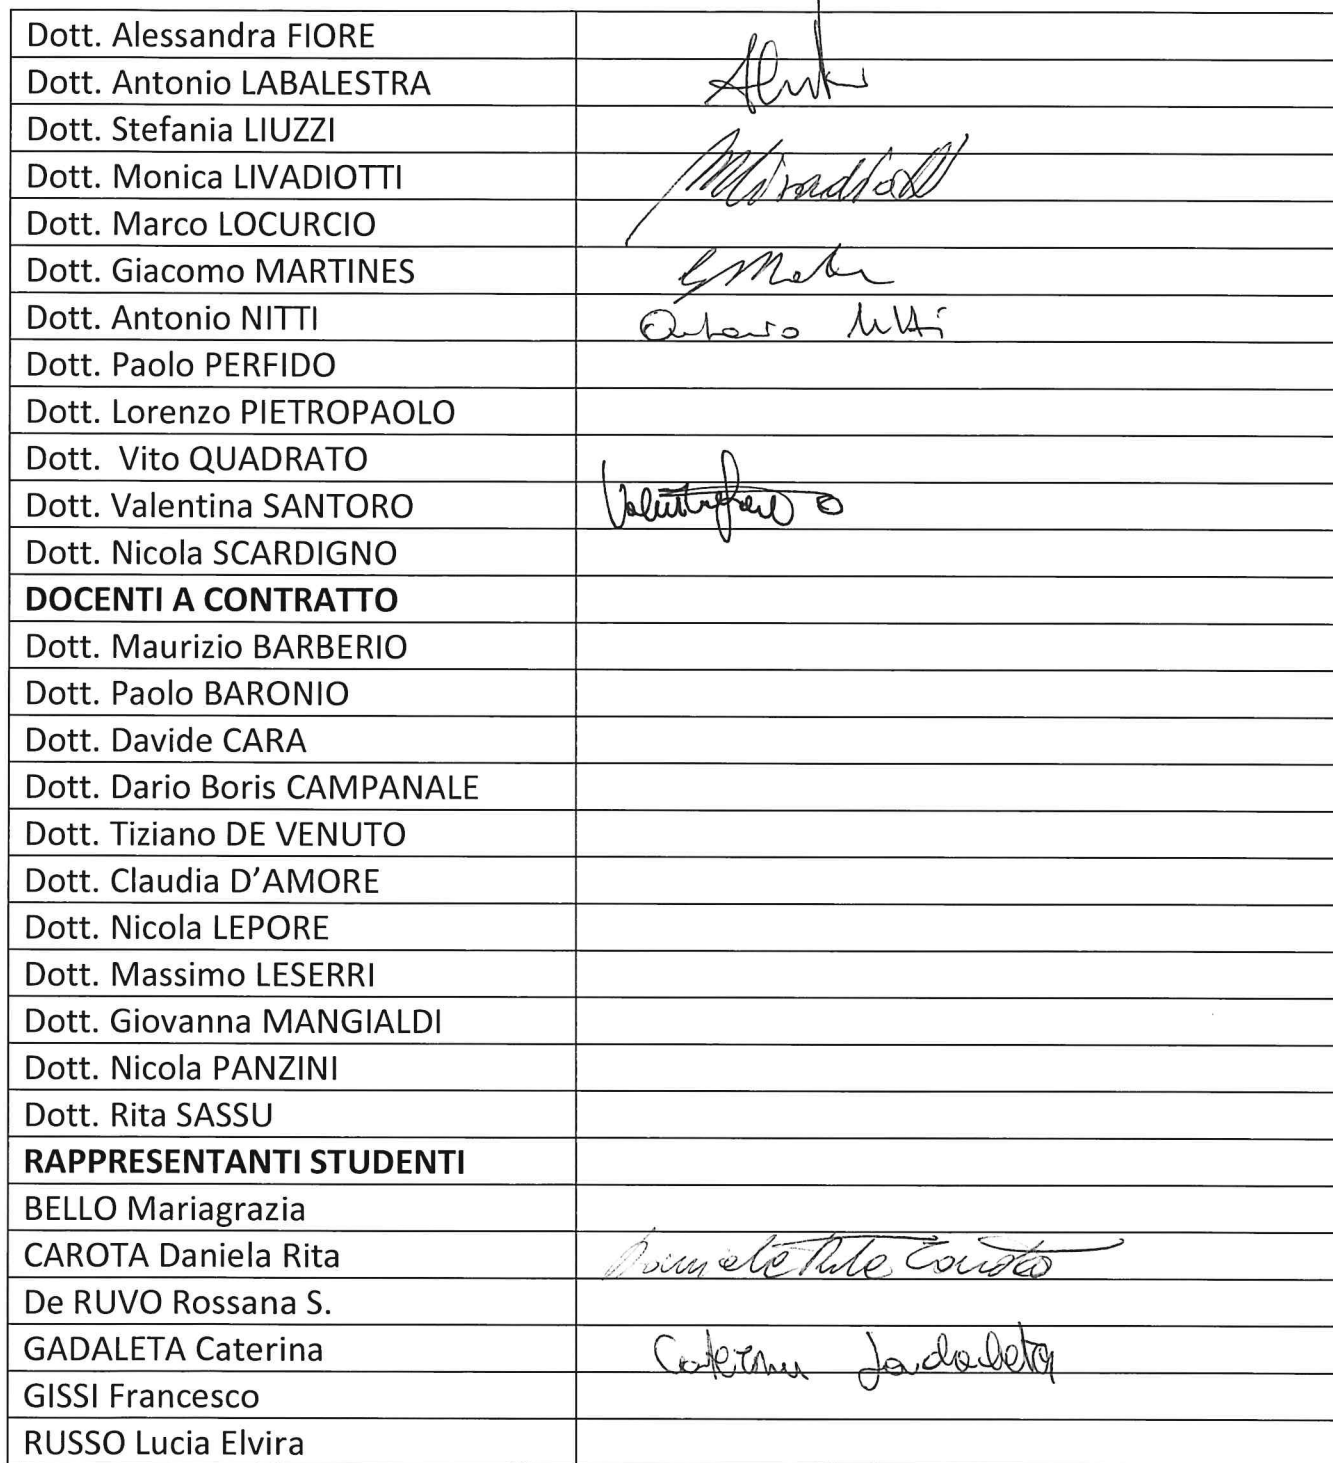 Dott. Alessandra FIORE
Dott. Antonio LABALESTRA
Dott. Stefania LIUZZI
Dott. Monica LIVADIOTTI
Dott. Marco LOCURCIO
Dott. Giacomo MARTINES
Dott. Antonio NITTI Antonio Nitti
Dott. Paolo PERFIDO
Dott. Lorenzo PIETROPAOLO
Dott. Vito QUADRATO
Dott. Valentina SANTORO
Dott. Nicola SCARDIGNO
DOCENTI A CONTRATTO
Dott. Maurizio BARBERIO
Dott. Paolo BARONIO
Dott. Davide CARA
Dott. Dario Boris CAMPANALE
Dott. Tiziano DE VENUTO
Dott. Claudia D'AMORE
Dott. Nicola LEPORE
Dott. Massimo LESERRI
Dott. Giovanna MANGIALDI
Dott. Nicola PANZINI
Dott. Rita SASSU
RAPPRESENTANTI STUDENTI
BELLO Mariagrazia
CAROTA Daniela Rita Daniela Rita Carota
De RUVO Rossana S.
GADALETA Caterina Caterina Gadaleta
GISSI Francesco
RUSSO Lucia Elvira